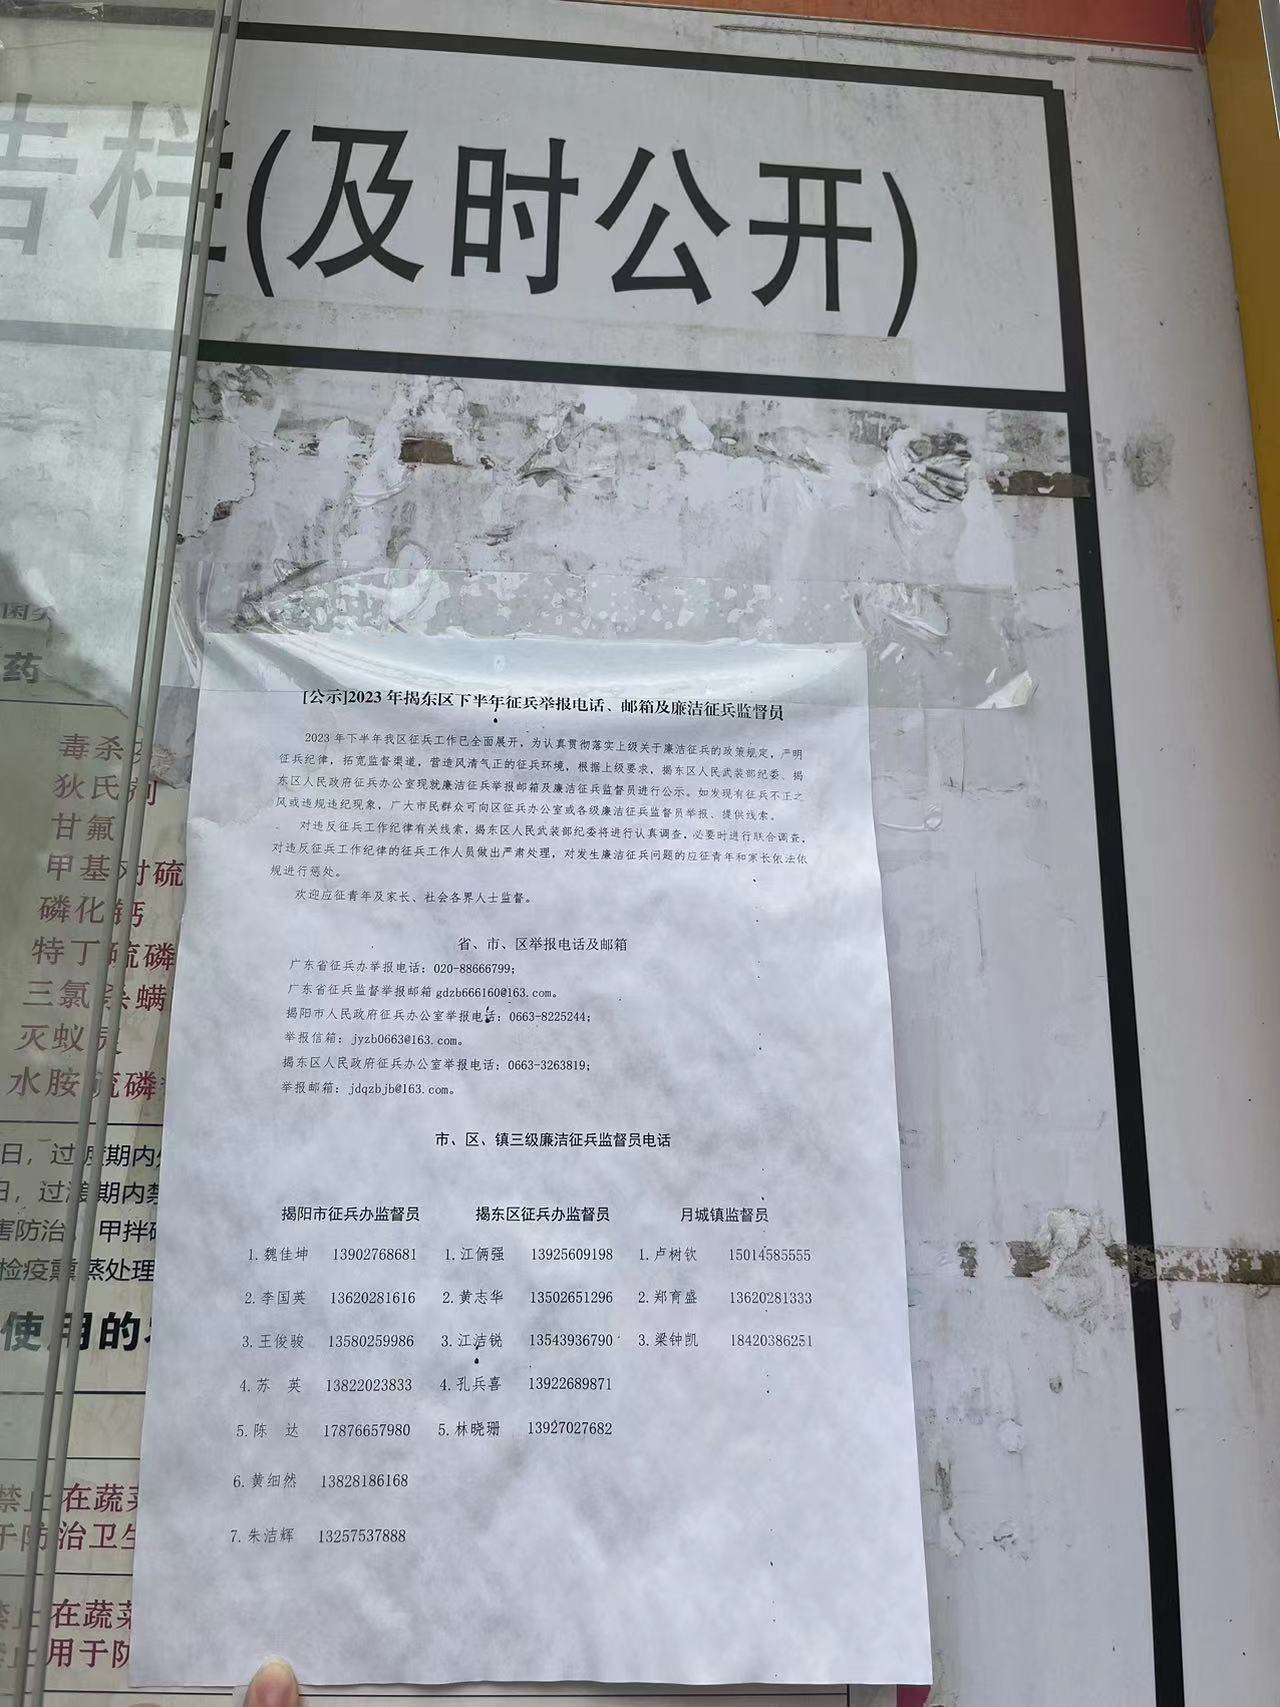 告栏(及时公开)
[公示]2023年揭东区下半年征兵举报电话、邮箱及廉洁征兵监督员
2023年下半年我区征兵工作已全面展开，为认真贯彻落实上级关于廉洁征兵的政策规定，严明
征兵纪律，拓宽监督渠道，营造风清气正的征兵环境，根据上级要求，揭东区人民武装部纪委、揭
东区人民政府征兵办公室现就廉洁征兵举报邮箱及廉洁征兵监督员进行公示。如发现有征兵不正之
风或违规违纪现象，广大市民群众可向区征兵办公室或各级廉洁征兵监督员举报、提供线索。
对违反征兵工作纪律有关线索，揭东区人民武装部纪委将进行认真调查，必要时进行联合调查，
对违反征兵工作纪律的征兵工作人员做出严肃处理，对发生廉洁征兵问题的应征青年和家长依法依
规进行惩处。
欢迎应征青年及家长、社会各界人士监督。
省、市、区举报电话及邮箱
广东省征兵办举报电话：020-88666799；
广东省征兵监督举报邮箱gdzb666160@163.com。
揭阳市人民政府征兵办公室举报电话：0663-8225244；
举报信箱：jyzb0663@163.com。
揭东区人民政府征兵办公室举报电话：0663-3263819；
举报邮箱：jdqzbjb@163.com。
市、区、镇三级廉洁征兵监督员电话
揭阳市征兵办监督员 揭东区征兵办监督员 月城镇监督员
1.魏佳坤 13902768681 1.江俩强 13925609198 1.卢树钦 15014585555
2.李国英 13620281616 2.黄志华 13502651296 2.郑育盛 13620281333
3.王俊骏 13580259986 3.江洁锐 13543936790 3.梁钟凯 18420386251
4.苏 英 13822023833 4.孔兵喜 13922689871
5.陈 达 17876657980 5.林晓珊 13927027682
6.黄细然 13828186168
7.朱洁辉 13257537888
药
毒杀
狄氏剂
甘氟
甲基对硫
磷化钙
特丁硫磷
三氯杀螨
灭蚁灵
水胺硫磷
日，过渡期内
日，过渡期内禁
害防治，甲拌
检疫熏蒸处理
使用的
禁止在蔬菜
于防治卫生
禁止在蔬菜
禁止用于防